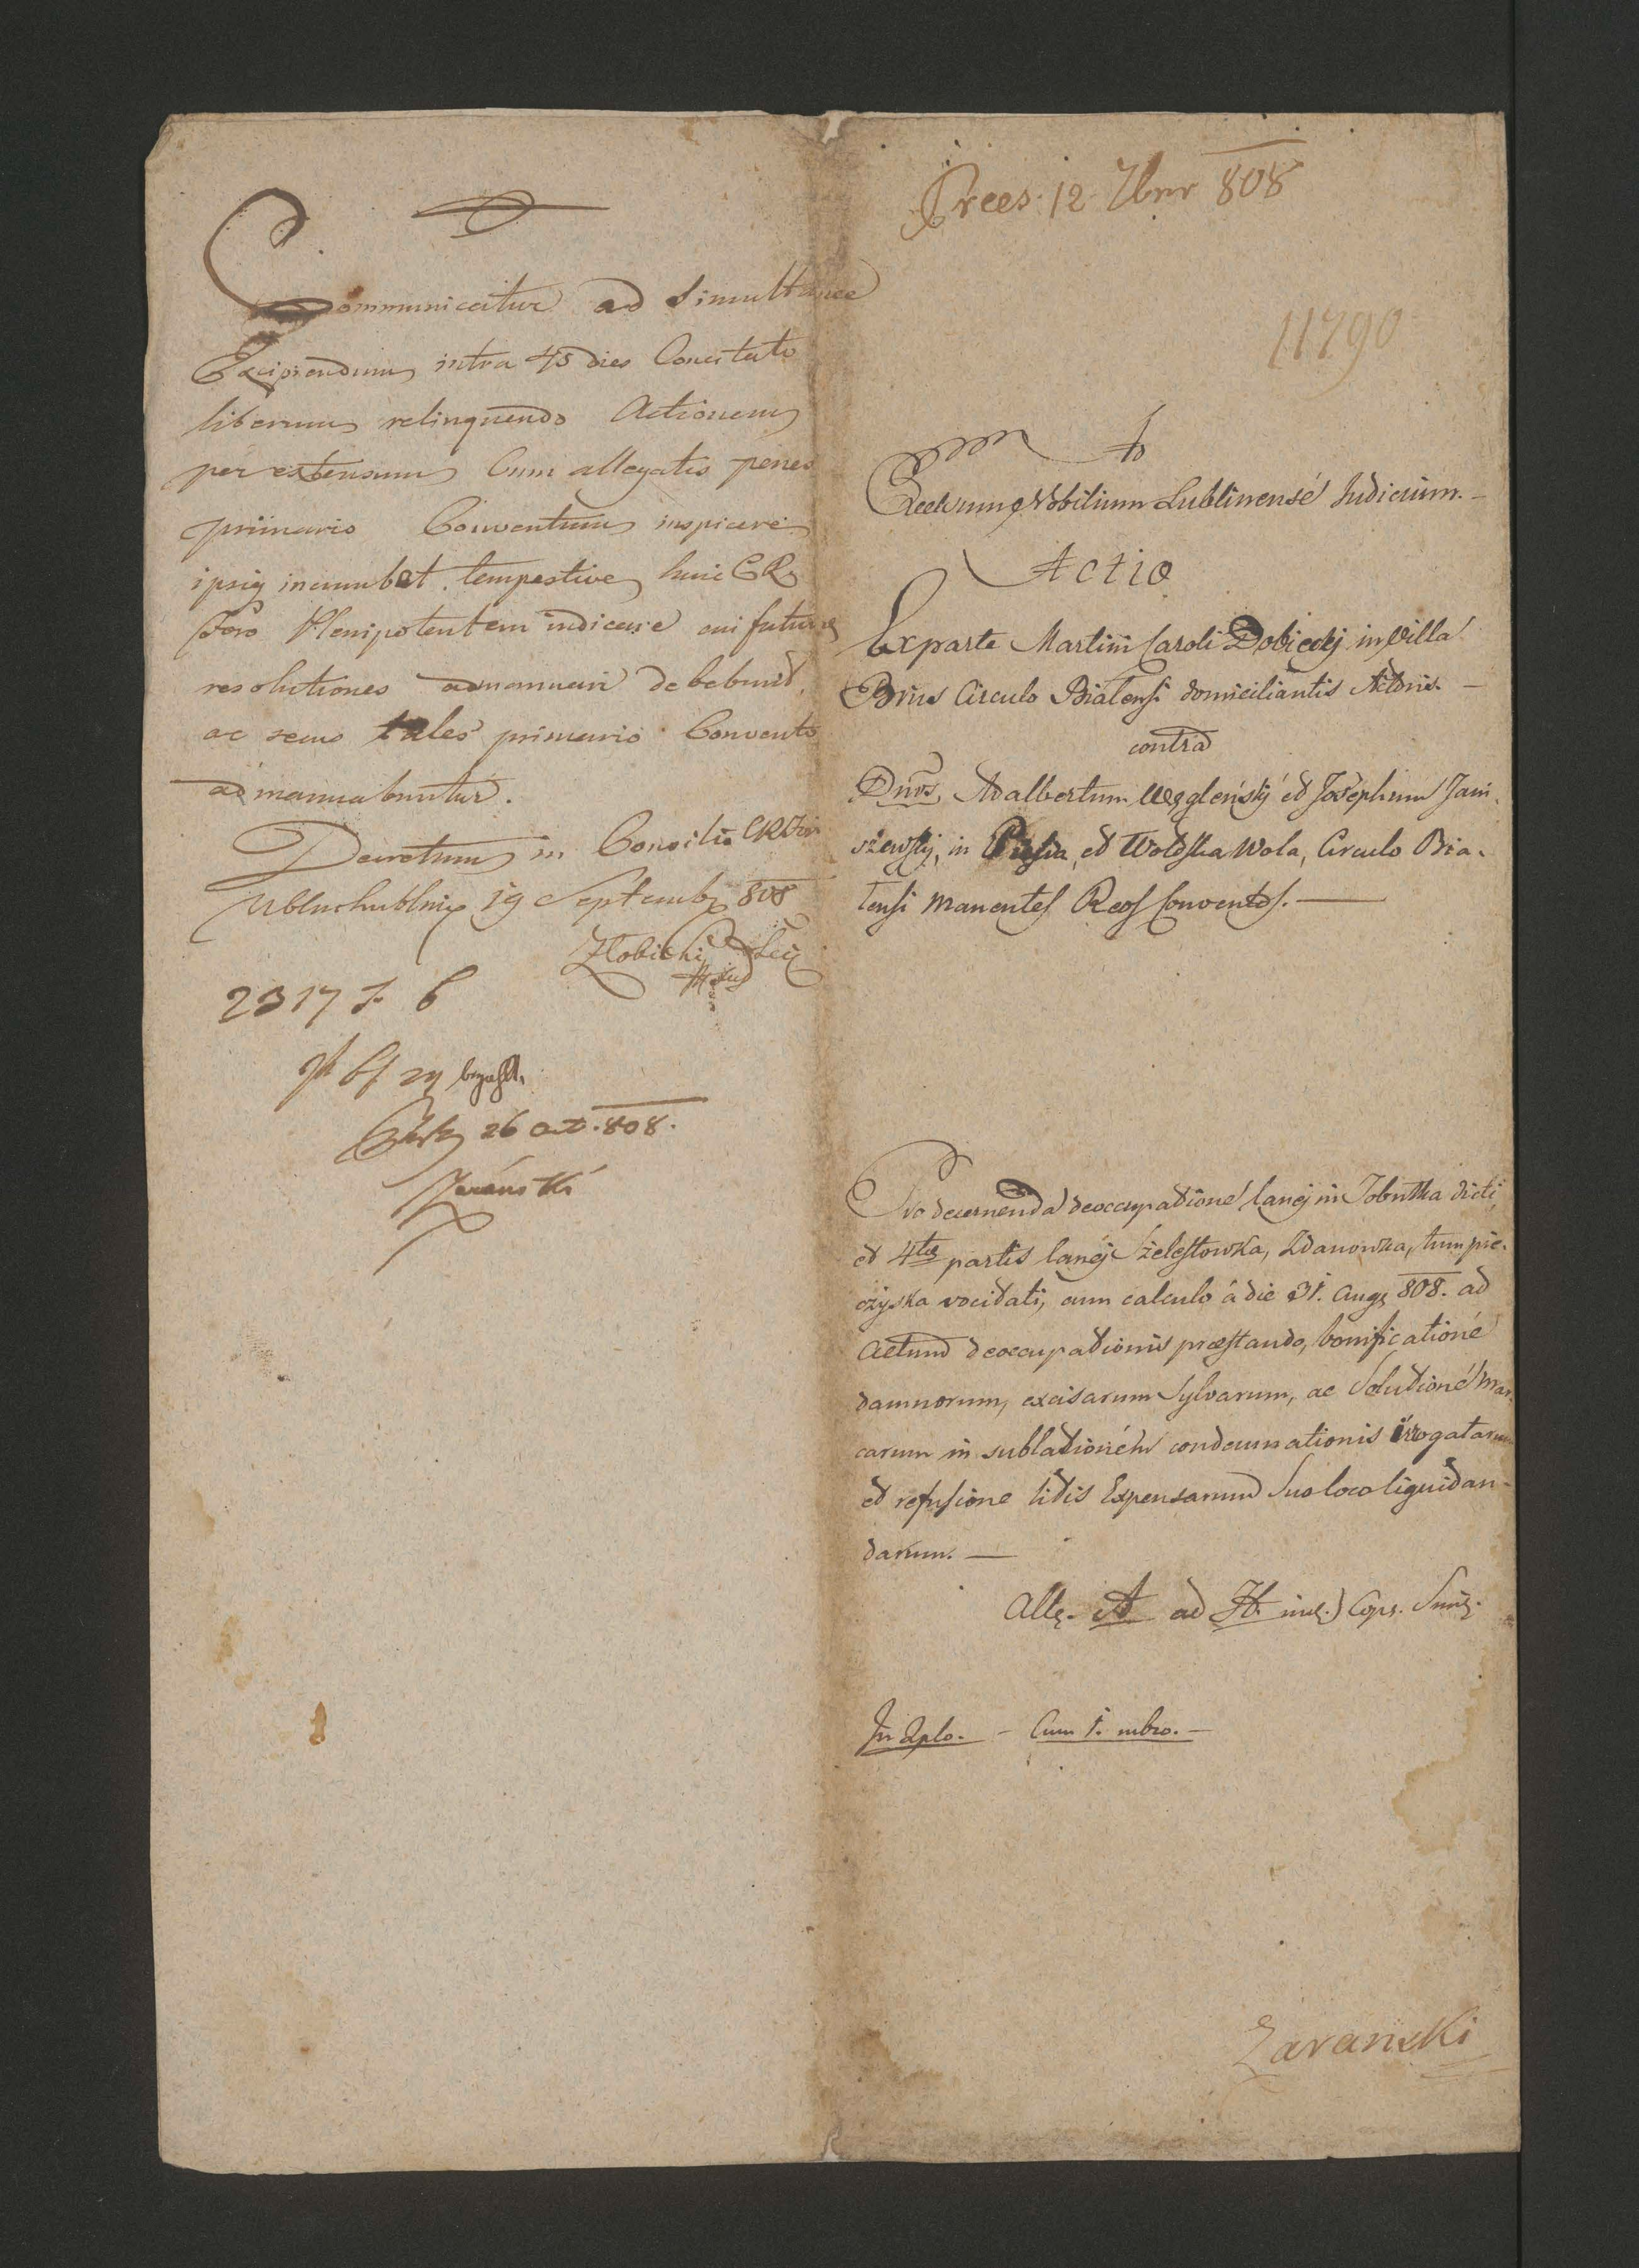 Communicatur ad Simultanee
Excipiendum intra 45 dies Concitato
liberum relinquendo Actionem
per extensum Cum allegatis penes
primario Conventum inspicere
ipsis incumbet tempestive huic CR
Foro Plenipotentem indicare cui futuræ
resolutiones admanuari debebunt
ac secus tales primario Convento
admanuabuntur.
Decretum in Consilio CR Fori
Nblm Lublnis 19 Septemb 808
Zlobicki
2317 f. 6
bezahlt.
26 oct. 808.
Zaránski
Prees. 12. 7bris 808
11790
Excelsum Nobilium Lublinensé Judicium. —
Actio
Ex parte Martini Caroli Dobiecky in Villa
Brus Circulo Bialensi domiciliantis Actoris. —
contra
Dnos Adalbertum Węgleński et Josephum Jani-
szewsky, in et Wolska Wola, Circulo Bia-
lensi manentes Reos Conventos. —
Pro decernenda deoccupatione lanei in Tobutka dicti,
et 4tæ partis lanei Szelestowka, Zdanowza, tum pie-
czyska vocitati, cum calculo á die 31. Aug 808. ad
Actum deoccupationis præstando, bonificationé
damnorum, excisarum Sylvarum, ac Solutioné Mar-
carum in sublationem condemnationis irrogatarum
et refusione litis Expensarum Suo loco liquidan-
darum. —
Alle. A ad H. incl.) Cops. Simp.
In 2plo. — Cum 1. rubro. —
Zaranski